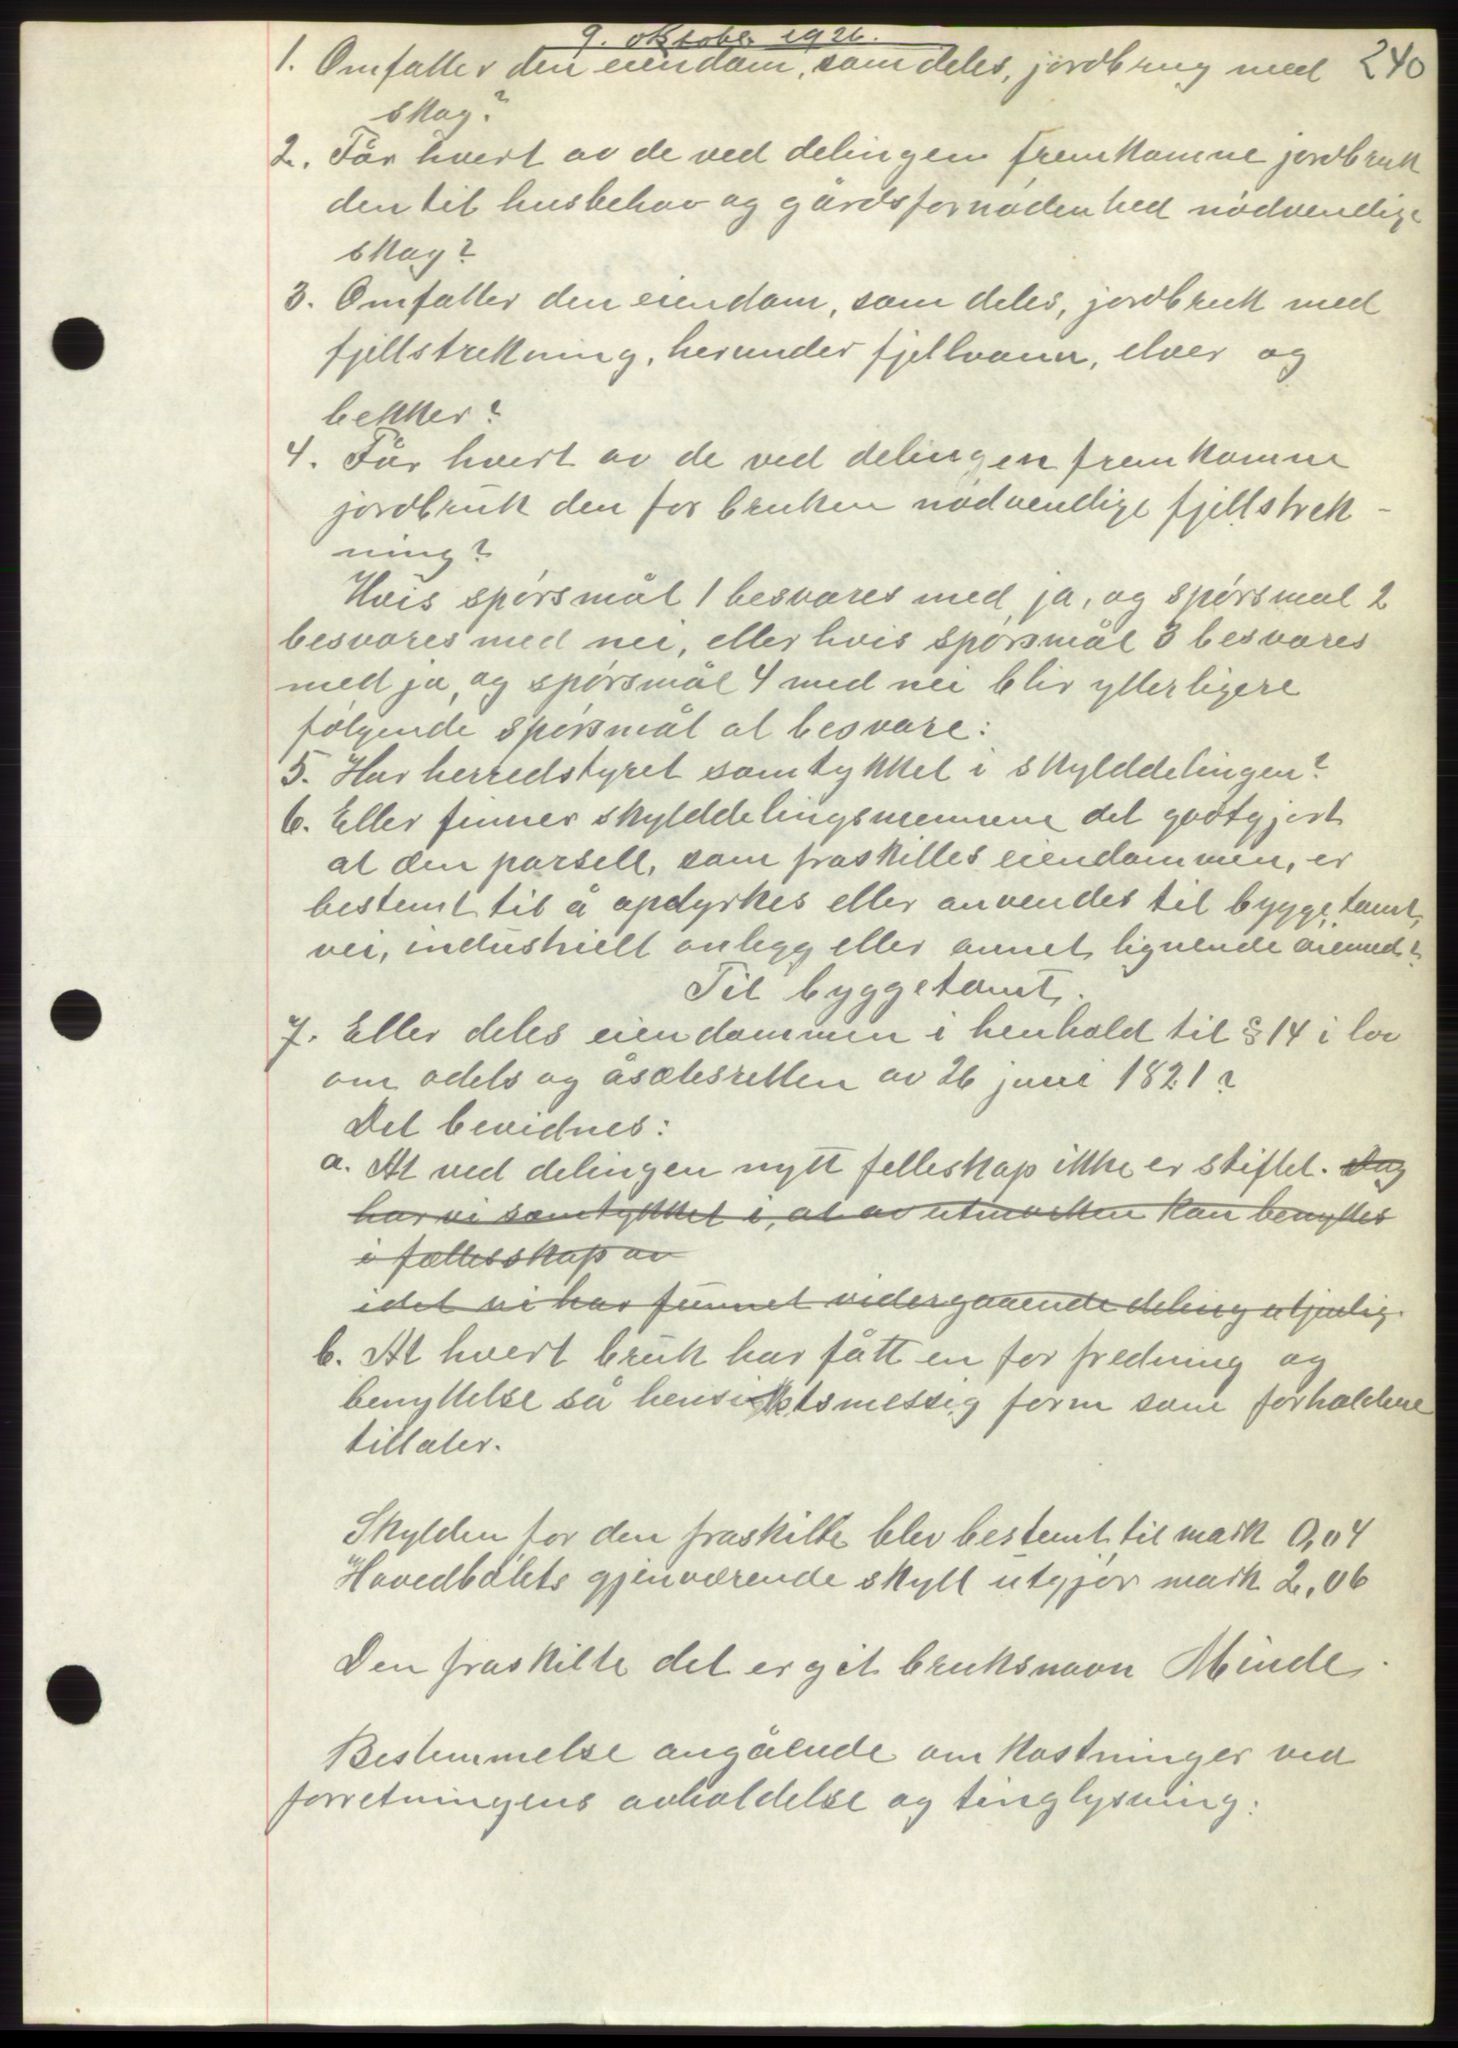 9. oktober 1926.
240
1. Omfatter den eiendom, som deles, jordbrug med
skog?
2. Får hvert av de ved delingen fremkomne jordbruk
den til husbehov og gårdsfornødenhed nødvendige
skog?
3. Omfatter den eiendom, som deles, jordbruk med
fjellstrekning, herunder fjellvann, elver og
bekker?
4. Får hvert av de ved delingen fremkomne
jordbruk den for bruken nødvendige fjellstrek-
ning?
Hvis spørsmål 1 besvares med ja, og spørsmål 2
besvares med nei, eller hvis spørsmål 3 besvares
med ja, og spørsmål 4 med nei blir ytterligere
følgende spørsmål at besvare:
5. Har herredstyret samtykket i skylddelingen?
6. Eller finner skylddelingsmennene det godtgjort
at den parsell, som fraskilles eiendommen, er
bestemt til å opdyrkes eller anvendes til byggetomt,
vei, industrielt anlegg eller annet lignende øiemed?
Til byggetomt.
7. Eller deles eiendommen i henhold til § 14 i lov
om odels og åsætesretten av 26 juni 1821?
Det bevidnes:
a. At ved delingen nytt felleskap ikke er stiftet. Dog
har vi samtykket i, at av utmarken kan benyttes
i fællesskap av
idet vi har funnet videregaaende deling utjenlig.
b. At hvert bruk har fått en for fredning og
benyttelse så hensiktsmessig form som forholdene
tillater.
Skylden for den fraskilte blev bestemt til mark 0,04
Hovedbølets gjenværende skyll utgjør mark 2,06
Den fraskilte del er git bruksnavn Minde.
Bestemmelse angålende omkostninger ved
forretningens avholdelse og tinglysning: